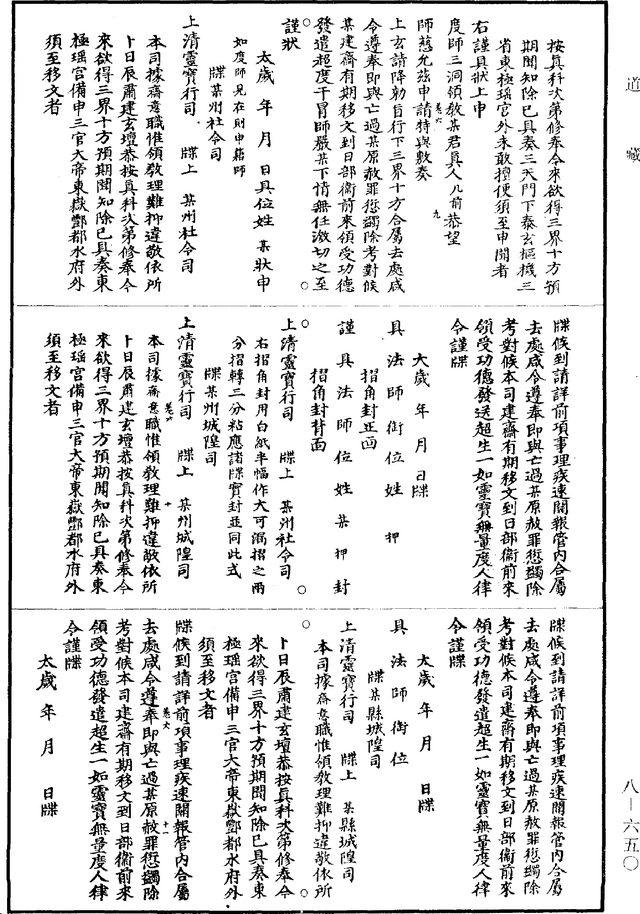 道藏
按真科次第修奉今來欲得三界十方預
期聞知除已具奏三天門下泰玄樞機三
省東極瑶宫外未敢擅便須至申聞者
右謹具狀上申
度師三洞領教某君真人几前恭望
師慈允兹申請特與敷奏
卷六 九
上玄請降勑旨行下三界十方合屬去處咸
令遵奉即與亡過某原赦罪愆蠲除考對候
某建齋有期移文到日部衛前來領受功德
發遣超度干冒師嚴某下情無任激切之至
謹狀
太歲 年 月 日具位姓 某狀申
如度師見在則申籍師
牒某州社令司
上清靈寳行司 牒上 某州社令司
本司據齋意職惟領敎理難抑違敬依所
卜日辰肅建玄壇恭按真科次第修奉今
來欲得三界十方預期聞知除已具奏東
極瑶宫備申三官大帝東嶽酆都水府外
須至移文者
牒候到請詳前項事理疾速關報管内合屬
去處咸令遵奉即與亡過某原赦罪愆蠲除
考對候本司建齋有期移文到日部衛前來
領受功德發送超生一如靈寳無量度人律
令謹牒
太歲 年 月 日牒
具 法 師 銜 位 姓 押
摺角封正面
謹 具 法 師 位 姓 某 押 封
摺角封背面
上清靈寳行司 牒上 某州社令司
右摺角封用白紙半幅作大可濶摺之兩
分摺轉三分粘應諸牒寳封並同此式
牒某州城隍司
上清靈寳行司 牒上 某州城隍司
卷六 十
本司據齋意職惟領敎理難抑違敬依所
卜日辰肅建玄壇恭按真科次第修奉今
來欲得三界十方預期聞知除已具奏東
極瑶宫備申三官大帝東嶽酆都水府外
須至移文者
牒候到請詳前項事理疾速關報管内合屬
去處咸令遵奉即與亡過某原赦罪愆蠲除
考對候本司建齋有期移文到日部衛前來
領受功德發遣超生一如靈寳無量度人律
令謹牒
太歲 年 月 日牒
具 法 師 銜 位
牒某縣城隍司
上清靈寳行司 牒上 某縣城隍司
本司據齋意職惟領敎理難抑違敬依所
卜日辰肅建玄壇恭按真科次第修奉今
來欲得三界十方預期聞知除已具奏東
極瑶宫備申三官大帝東嶽酆都水府外
須至移文者
牒候到請詳前項事理疾速關報管内合屬
卷六 十一
去處咸令遵奉即與亡過某原赦罪愆蠲除
考對候本司建齋有期移文到日部衛前來
領受功德發遣超生一如靈寳無量度人律
令謹牒
太歲 年 月 日牒
八—六五〇